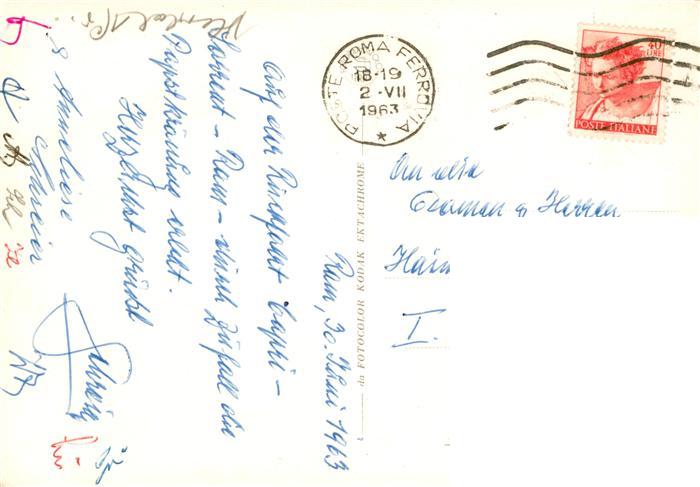 Rom, 30. Juni 1963
Auf der Rückfahrt Capri –
Sorrent – Rom – durch Zufall die
Papstkrönung erlebt.
Herzlichst grüßt
& Anneliese
Schreier
An die
Damen u. Herren
Hain
I.
POSTE ROMA FERROVIA
18-19
2 -VII
1963
40
LIRE
POSTE ITALIANE
da FOTOCOLOR KODAK EKTACHROME